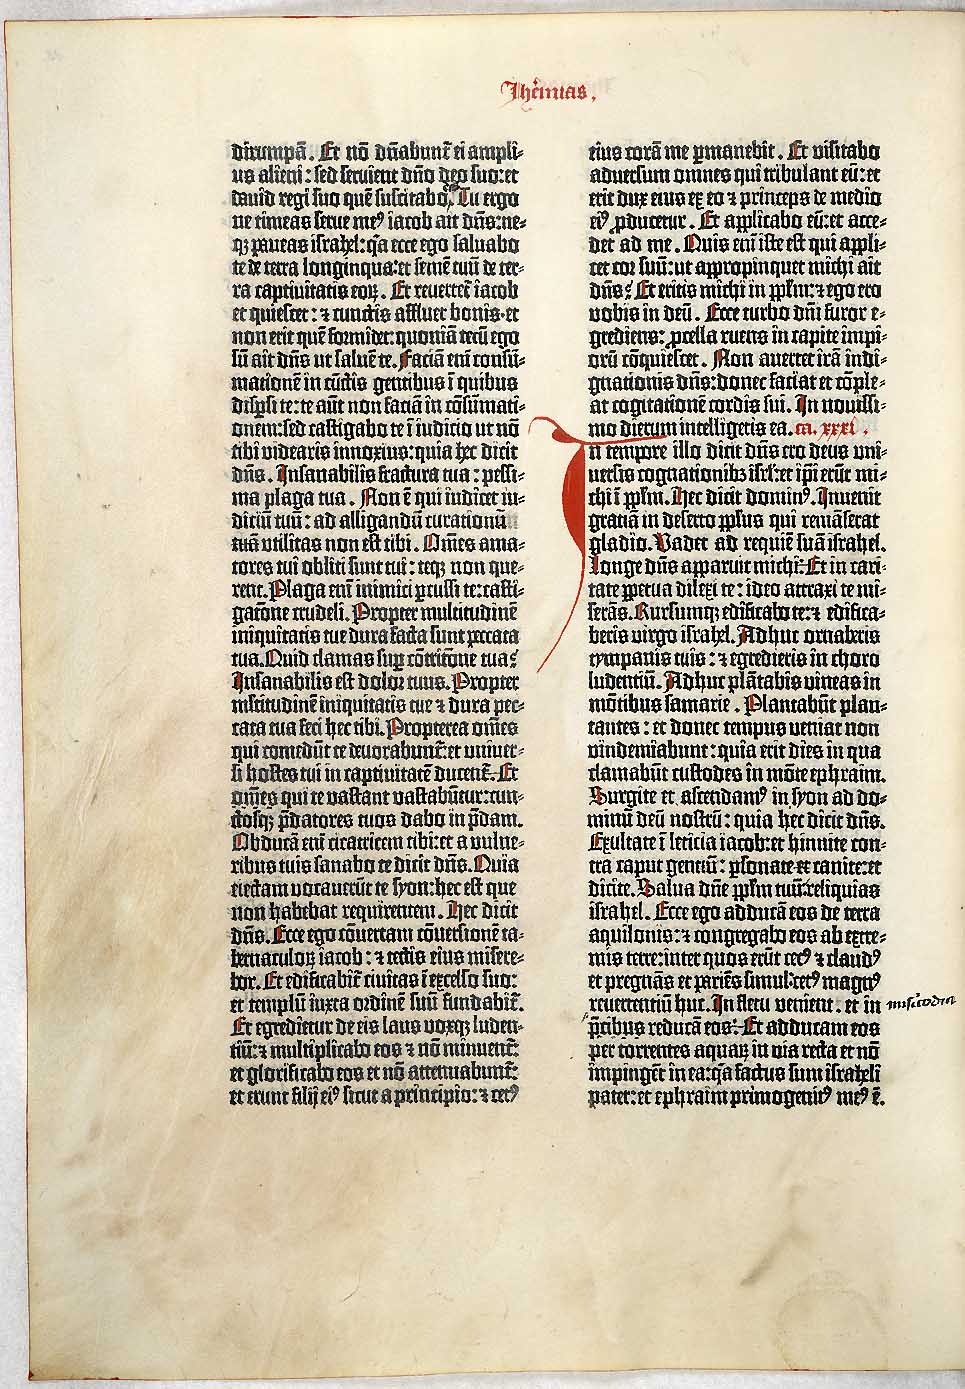 Jh'emias.
dirumpā. Et nō dn̄abunt̄ ei ampli-
us alieni: sed seruient dn̄o deo suo: et
dauid regi suo quē suscitabo eis. Tu ergo
ne timeas serue meꝰ iacob ait dn̄s: ne-
qꝫ paueas israhel: q̄a ecce ego saluabo
te de terra longinqua: et semē tuū de ter-
ra captiuitatis eoꝝ. Et reuertet̄ iacob
et quiescet: ⁊ cunctis affluet bonis· et
non erit quē formidet: quoniā tecū ego
sū ait dn̄s ut saluē te. Faciā eni cōsū-
mationē in cūctis gentibus ī quibus
disꝑsi te: te aūt non faciā in cōsumati-
onem: sed castigabo te ī iudicio ut nō
tibi videaris innoxius: quia hec dicit
dn̄s. Insanabilis fractura tua: pessi-
ma plaga tua. Non ē qui iudicet iu-
diciū tuū: ad alligandū curationū
tuā utilitas non est tibi. Om̄es ama-
tores tui obliti sunt tui: teqꝫ non que-
rent. Plaga eni inimici ꝑcussi te: casti-
gatōne crudeli. Propter multitudinē
iniquitatis tue dura facta sunt peccata
tua. Quid clamas suꝑ cōtritōne tua?
Insanabilis est dolor tuus. Propter
mltitudinē iniquitatis tue ⁊ dura pec-
cata tua feci hec tibi. Propterea om̄es
qui comedūt te deuorabunt̄: et uniuer-
si hostes tui in captiuitatē ducent̄. Et
om̄es qui te vastant vastabūtur: cun-
ctosqꝫ p̄datores tuos dabo in p̄dam.
Obducā eni cicatricem tibi: et a vulne-
ribus tuis sanabo te dicit dn̄s. Quia
eiectam vocauerūt te syon: hec est que
non habebat requirentem. Hec dicit
dn̄s. Ecce ego cōuertam cōuersionē ta-
bernaculoꝝ iacob: ⁊ tectis eius misere-
bor. Et edificabit̄ ciuitas ī excelso suo:
et templū iuxta ordinē suū fundabit̄.
Et egredietur de eis laus voxqꝫ luden-
tiū: ⁊ multiplicabo eos ⁊ nō minuent̄:
et glorificabo eos et nō attenuabunt̄:
et erunt filij eiꝰ sicut a principio: ⁊ cetꝰ
eius corā me ꝑmanebit. Et visitabo
aduersum omnes qui tribulant eū: et
erit dux eius ex eo ⁊ princeps de medio
eiꝰ ꝓducetur. Et applicabo eū: et acce-
det ad me. Quis eni iste est qui appli-
cet cor suū: ut appropinquet michi ait
dn̄s? Et eritis michi in pp̄lm: ⁊ ego ero
vobis in deū. Ecce turbo dn̄i furor e-
grediens: ꝓcella ruens in capite impi-
orū cōquiescet. Non auertet irā indi-
gnationis dn̄s: donec faciat et cōple-
at cogitationē cordis sui. In nouissi-
mo dierum intelligetis ea. ca. xxxi.
In tempore illo dicit dn̄s ero deus uni-
uersis cognationibꝫ isrl̄: et ip̄i erūt mi-
chi ī pp̄lm. Hec dicit dominꝰ. Inuenit
gratiā in deserto pp̄lus qui remāserat
gladio. Vadet ad requiē suā israhel.
Longe dn̄s apparuit michi. Et in cari-
tate ꝑpetua dilexi te: ideo attraxi te mi-
serās. Rursumqꝫ edificabo te: ⁊ edifica-
beris virgo israhel. Adhuc ornaberis
tympanis tuis: ⁊ egredieris in choro
ludentiū. Adhuc plātabis vineas in
mōtibus samarie. Plantabūt plan-
tantes: et donec tempus veniat non
vindemiabunt: quia erit dies in qua
clamabūt custodes in mōte ephraim.
Surgite et ascendamꝰ in syon ad do-
minū deū nostrū: quia hec dicit dn̄s.
Exultate ī leticia iacob: et hinnite con-
tra caput gentiū: ꝑsonate et canite: et
dicite. Salua dn̄e pp̄lm tuū: reliquias
israhel. Ecce ego adducā eos de terra
aquilonis: ⁊ congregabo eos ab extre-
mis terre: inter quos erūt cecꝰ ⁊ claudꝰ
et pregnās et pariēs simul: cetꝰ magnꝰ
reuertentiū huc. In fletu venient· et in misīcordia
p̄cibus reducā eos: Et adducam eos
per torrentes aquaꝝ in via recta et nō
impingēt in ea: q̄a factus sum israheli
pater: et ephraim primogenitꝰ meꝰ ē.